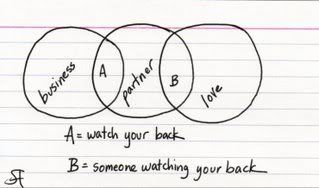 business
A
partner
B
love
A = watch your back
B = someone watching your back